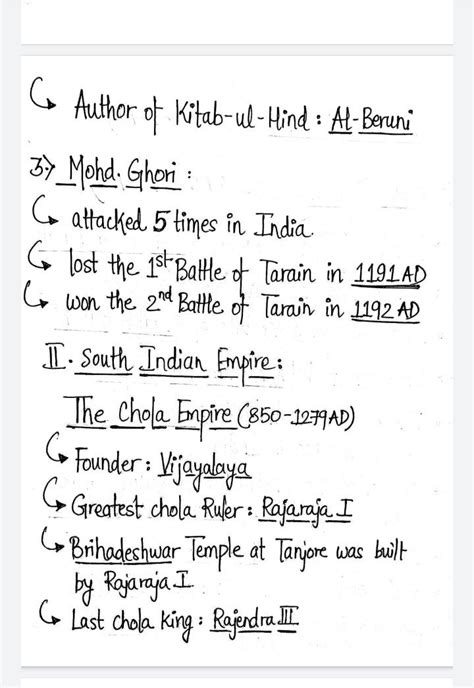 ↳ Author of Kitab-ul-Hind : Al-Beruni
3→ Mohd. Ghori :
↳ attacked 5 times in India.
↳ lost the 1st Battle of Tarain in 1191 AD
↳ won the 2nd Battle of Tarain in 1192 AD
II. South Indian Empire :
The Chola Empire (850-1279AD)
↳ Founder : Vijayalaya
↳ Greatest chola Ruler : Rajaraja I
↳ Brihadeshwar Temple at Tanjore was built
by Rajaraja I.
↳ Last chola king : Rajendra III